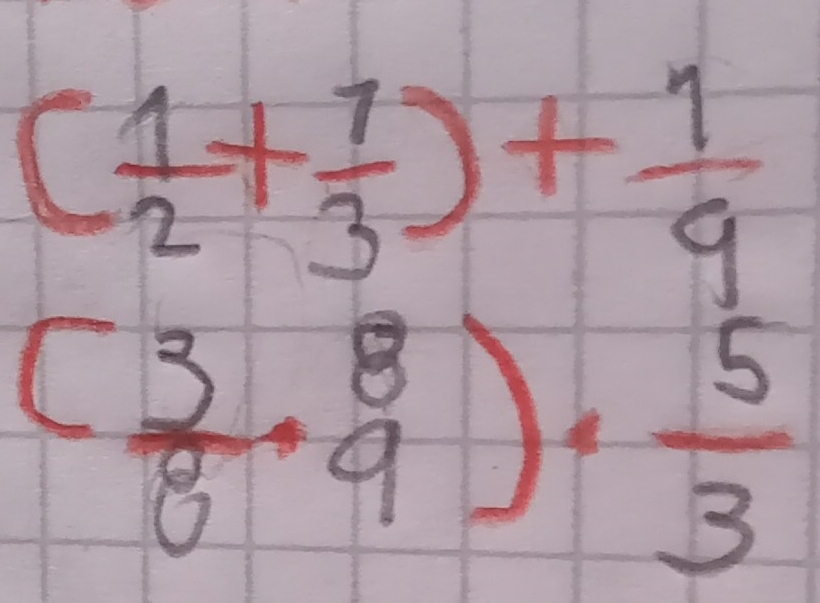 (1/2 + 1/3) + 1/9
(3/8 · 8/9) · 5/3